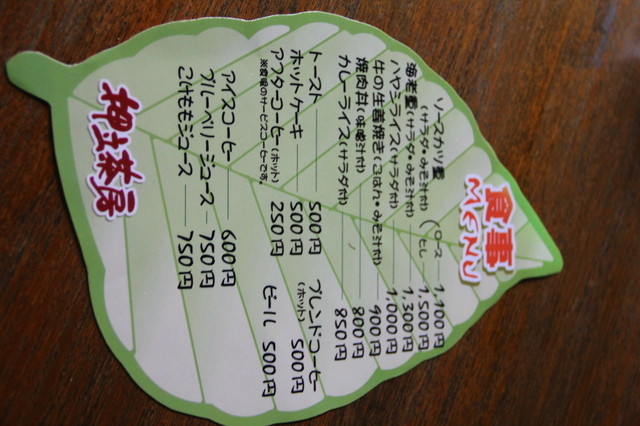 食事
MENU
ソースカツ重 ロース 1,100円
(サラダ・みそ汁付) ヒレ 1,500円
海老重(サラダ・みそ汁付) 1,300円
ハヤシライス(サラダ付) 1,000円
牛の生姜焼き(ごはん・みそ汁付) 900円
焼肉丼(味噌汁付) 800円
カレーライス(サラダ付) 850円
トースト 500円
ホットケーキ 500円
アフターコーヒー(ホット) 250円
※食後のサービスコーヒーです。
ブレンドコーヒー
(ホット) 500円
ビール 500円
アイスコーヒー 600円
ブルーベリージュース 750円
こけももジュース 750円
押立茶房